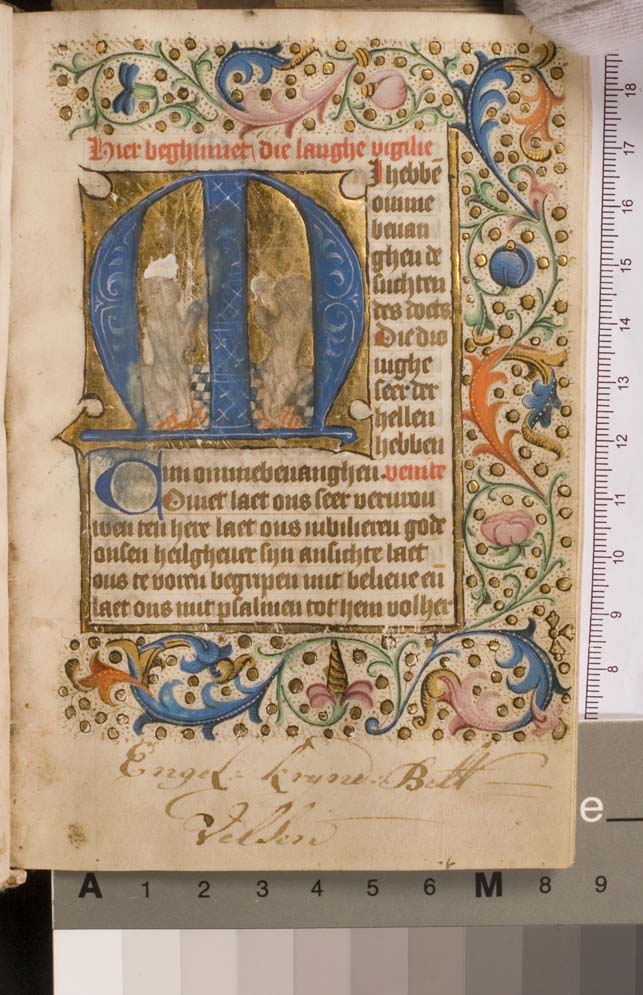 Hier beghinnet die langhe vigilie
M
I hebbē
omme
beuan
ghen de
suchten
des doots
Die dro
uighe
seer der
hellen
hebben
mi ommebeuanghen. venite
Comet laet ons seer verurou
wen ten here laet ons iubilieren gode
onsen heilgheuer sijn ansichte laet
ons te voren begripen mit belieue eñ
laet ons mit psalmen tot hem volher
Engel
Velsen
18
17
16
15
14
13
12
11
10
9
8
e
A 1 2 3 4 5 6 M 8 9